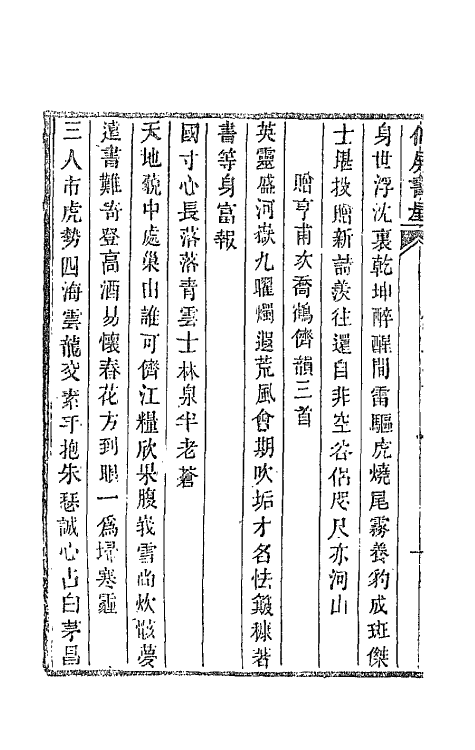 身世浮沈裏乾坤醉醒間雷驅虎燒尾霧養豹成班傑
士堪投贈新詩羨往還自非空谷侶咫尺亦河山
贈亨甫次喬鶴儕韻三首
英靈盛河嶽九曜燭遐荒風會期吹垢才名怯鍛穅著
書等身富報
國寸心長落落青雲士林泉半老蒼
天地藐中處巢由誰可儕江糧欣果腹峩雪尚炊骸夢
遠書難寄登高酒易懷春花方到眼一為埽寒霾
三人市虎勢四海雲龍交素手抱朱瑟誠心占白茅昌